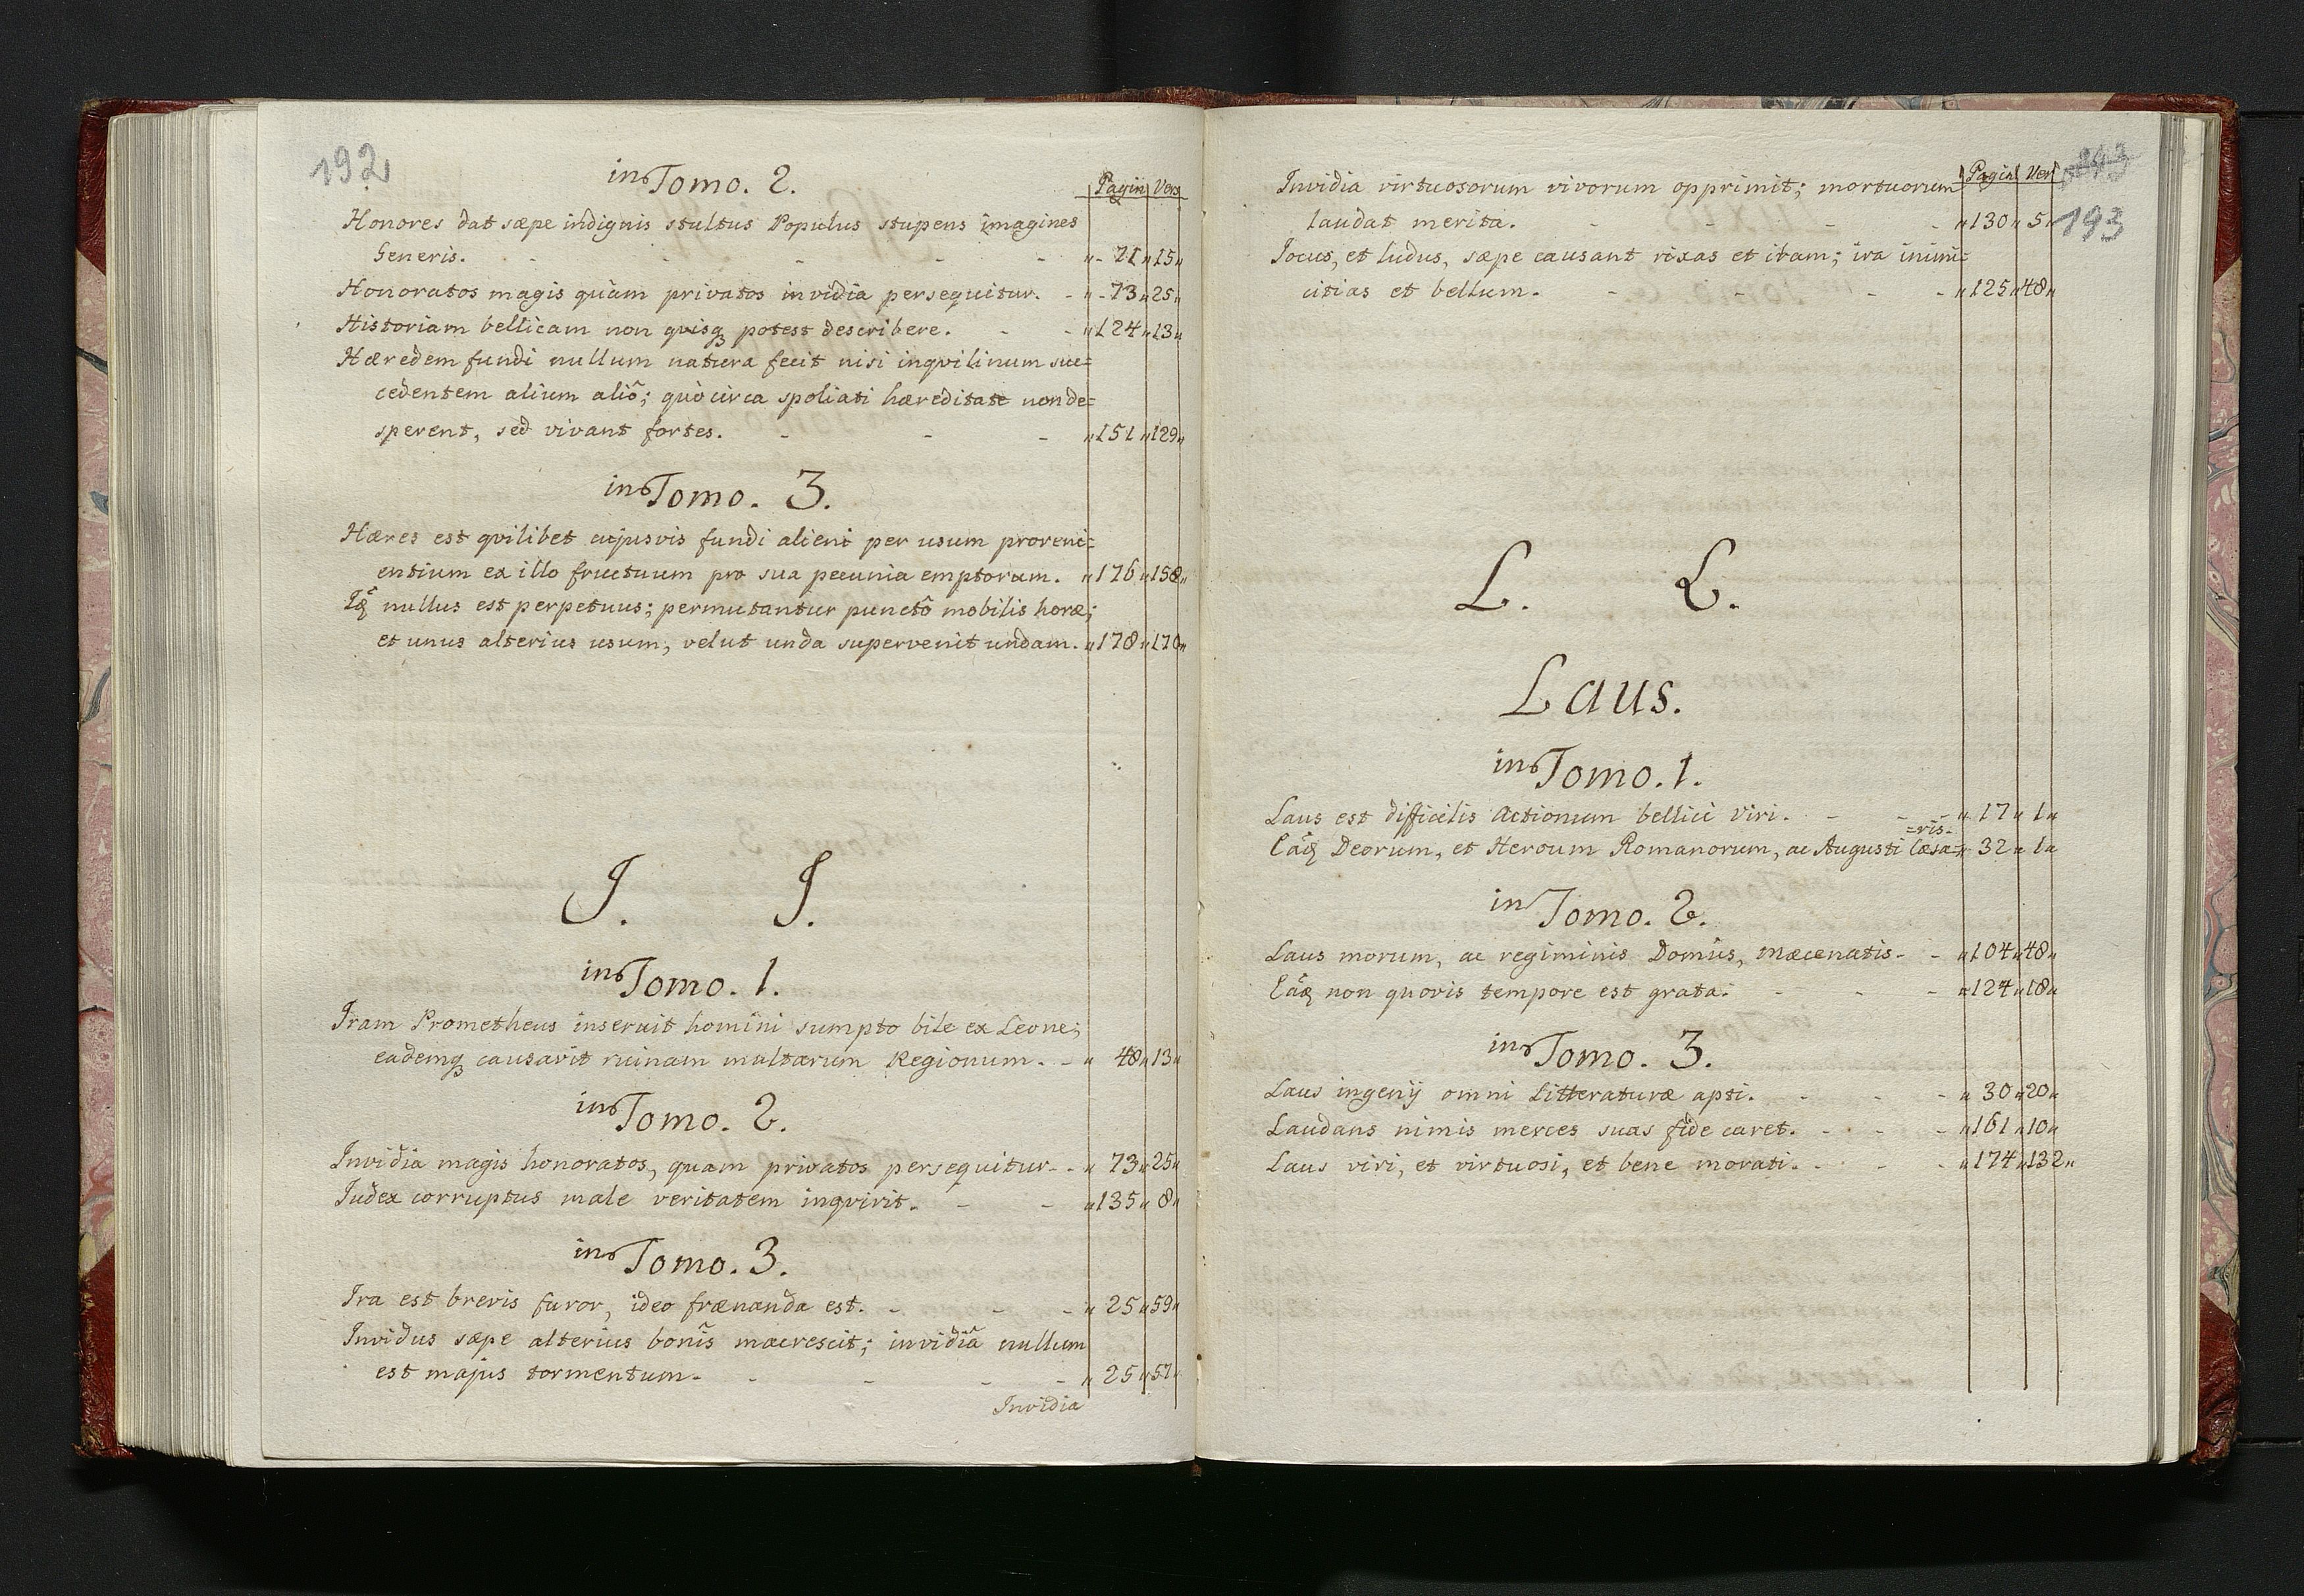 192
in Tomo. 2.
Pagin Vers
Honores dat sæpe indignis stultus Populus stupens imagines
Generis. - - - - - „- 71„15„
Honoratos magis quàm privatos invidia persequitur. - „- 73„25„
Historiam bellicam non quisq potest describere. - - „124„13„
Hæredem fundi nullum natura fecit nisi inqvilinum suc=
cedentem alium aliô; quò circa spoliati hæreditate non de=
sperent, sed vivant fortes. - - - „151„129„
in Tomo. 3.
Hæres est qvilibet cujusvis fundi alieni per usum proveni=
entium ex illo fructuum pro sua pecunia emptorum. „176„158„
nullus est perpetuus; permutantur punctô mobilis horæ;
et unus alterius usum, velut unda supervenit undam. „178„170„
J. J.
in Tomo. 1.
Iram Prometheus inseruit homini sumpto bile ex Leone;
eademq causavit ruinam multarum Regionum. - „ 48„13„
in Tomo. 2.
Invidia magis honoratos, quam privatos persequitur. - „ 73„25„
Iudex corruptus male veritatem inqvirit. - - „135„ 8„
in Tomo. 3.
Ira est brevis furor, ideo frænanda est. - - - „ 25„59„
Invidus sæpe alterius bonîs macrescit; invidiâ nullum
est majus tormentum. - - - - „ 25„57„
Invidia
Pagin Ver 243
Invidia virtuosorum vivorum opprimit; mortuorum
laudat merita. - - - - „130„ 5„ 193
Jocus, et ludus, sæpe causant rixas et iram; ira inimi=
citias et bellum. - - - - „125„48„
L. L.
Laus.
in Tomo. 1.
Laus est difficilis Actionum bellici Viri. - - - „ 17„ 1„
=ris-
Eâq Deorum, et Heroum Romanorum, ac Augusti Cæsa= „ 32„ 1„
in Tomo. 2.
Laus morum, ac regiminis Domûs, Mæcenatis. - „104„48„
Eâq non quovis tempore est grata. - - - „124„18„
in Tomo. 3.
Laus ingenij omni Litteraturæ apti. - - - „ 30„20„
Laudans nimis merces suas fide caret. - - - „161„10„
Laus viri, et virtuosi, et bene morati. - - - „174„132„